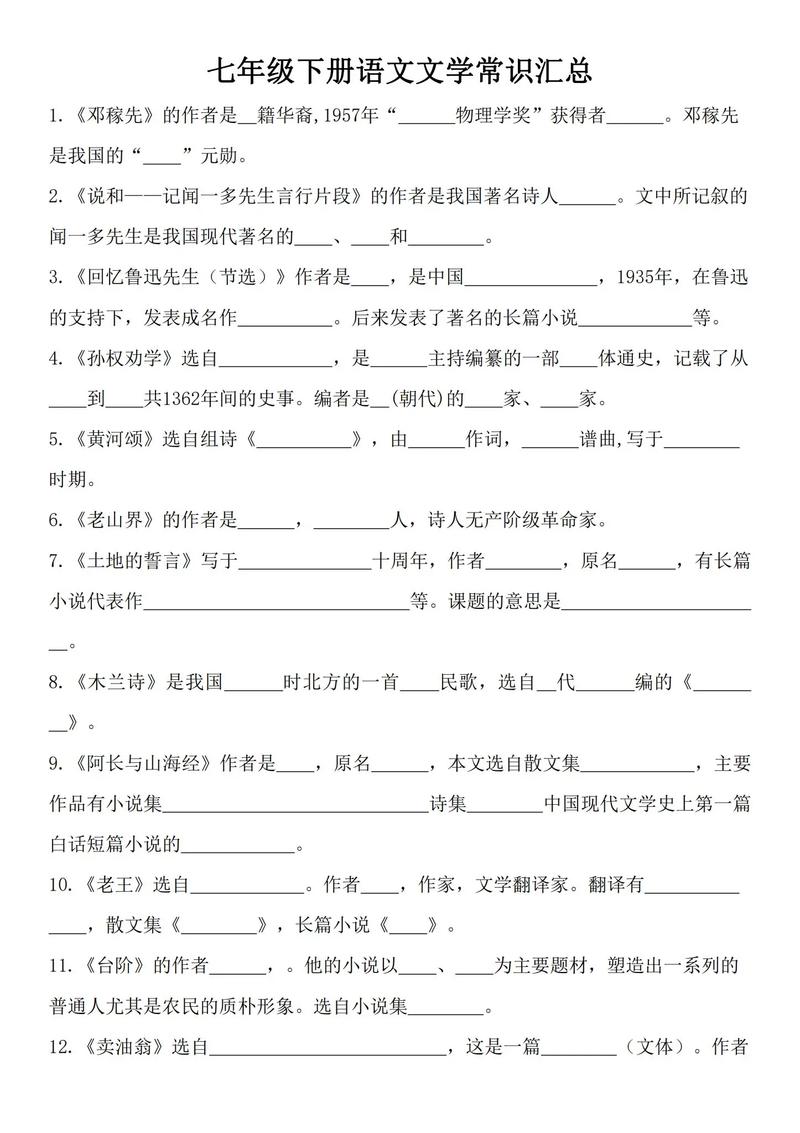 七年级下册语文文学常识汇总
1.《邓稼先》的作者是__籍华裔,1957年“______物理学奖”获得者______。邓稼先
是我国的“____”元勋。
2.《说和——记闻一多先生言行片段》的作者是我国著名诗人______。文中所记叙的
闻一多先生是我国现代著名的____、____和________。
3.《回忆鲁迅先生（节选）》作者是____，是中国______________，1935年，在鲁迅
的支持下，发表成名作__________。后来发表了著名的长篇小说____________等。
4.《孙权劝学》选自____________，是______主持编纂的一部____体通史，记载了从
____到____共1362年间的史事。编者是__(朝代)的____家、____家。
5.《黄河颂》选自组诗《__________》，由______作词，______谱曲,写于________
时期。
6.《老山界》的作者是______，________人，诗人无产阶级革命家。
7.《土地的誓言》写于______________十周年，作者________，原名______，有长篇
小说代表作____________________________等。课题的意思是____________________
__。
8.《木兰诗》是我国______时北方的一首____民歌，选自__代______编的《______
__》。
9.《阿长与山海经》作者是____，原名______，本文选自散文集____________，主要
作品有小说集____________________________诗集________中国现代文学史上第一篇
白话短篇小说的____________。
10.《老王》选自____________。作者____，作家，文学翻译家。翻译有__________
____，散文集《________》，长篇小说《____》。
11.《台阶》的作者______，。他的小说以____、____为主要题材，塑造出一系列的
普通人尤其是农民的质朴形象。选自小说集________。
12.《卖油翁》选自_________________________，这是一篇________（文体）。作者